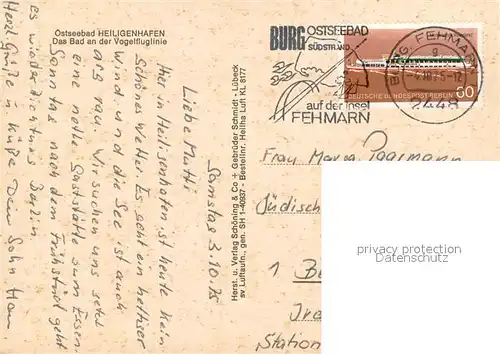 Ostseebad HEILIGENHAFEN
Das Bad an der Vogelfluglinie
Samstag 3.10.75
Liebe Mutti
Hier in Heiligenhafen ist heute kein
schönes Wetter. Es geht ein heftiger
Wind und die See ist auch
sehr rauh. Wir suchen uns jetzt
eine nette Gaststätte zum Essen.
Sonntag nach dem Frühstück geht
es wieder Richtung Berlin
Herzl Grüße u Küße Dein Sohn
Herst. u. Verlag Schöning & Co + Gebrüder Schmidt - Lübeck
sv Luftaufn., gen. SH 1-40937 - Bestellnr. Heilha Luft KL 8177
BURG OSTSEEBAD
SÜDSTRAND
auf der Insel
FEHMARN
BURG, FEHMARN
g
2448
DEUTSCHE BUNDESPOST BERLIN
30
Frau
Jüdisch
1
Station
privacy protection
Datenschutz